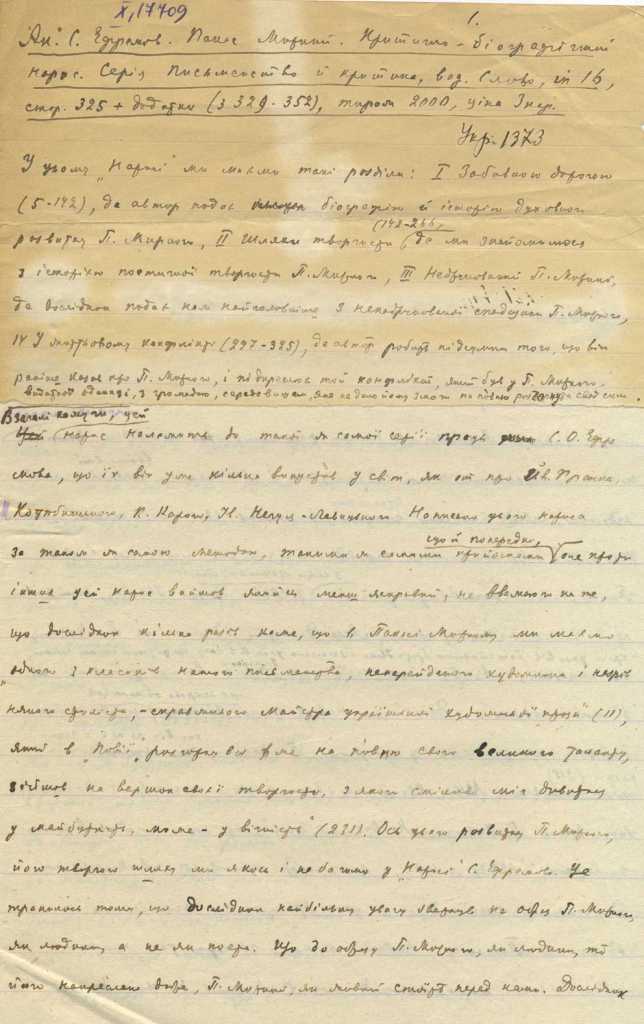 X, 17709
1.
Ак. С. Єфремов. Панас Мирний. Критично-біографічний
нарис. Серія письменство й критика, вид. Слово, in 16,
стор. 325 + додатки (з 329-352), тираж 2000, ціна 3 кр.
Укр. 1373
У цьому „Нарисі" ми маємо такі розділи: I Забавною дорогою
(5-142), де автор подає біографію й історію духовного
(142-266,
розвитку П. Мирного, II Шляхи творчости де ми знайомимось
з історією поетичної творчости П. Мирного, III П. Мирного,
де дослідник подає нам найголовніше з спадщини П. Мирного,
IV У життьовому конфлікті (297-325), де автор робить підсумки того, що він
раніше казав про П. Мирного, і підкреслює той конфлікт, який був у П. Мирного,
з громадою, середовищем, яке не дало йому змоги на повно
Взагалі кажучи, цей
нарис належить до такої ж самої серії праць С. О. Єфре
мова, що їх він уже кілька випустив у світ, як от про Ів. Франка,
Коцюбинського, К. Карого, Н. Нечуя-Левицького. Написано цього нариса
що й попередні,
за такою ж самою методою, такими ж самими прийомами, але проти
інших цей нарис вийшов якийсь менш яскравий, не вважаючи на те,
що дослідник кілька разів каже, що в Панасі Мирному ми маємо
„одного з класиків нашого письменства, художника і
століття, - справжнього майстра української художньої прози" (11),
який в „Повії" розгорнувся вже на повню свого великого таланту,
зійшов на вершок своєї творчости, з якого сміливо міг дивитись
у майбутність, може - у вічність" (231). Ось цього розвитку П. Мирного,
його творчого шляху ми якось і не бачимо у „Нарисі" С. Єфремова. Це
трапилось тому, що дослідник найбільшу увагу звернув на особу П. Мирного,
як людину, а не як поета. Що до особи П. Мирного, як людини, то
його накреслено добре, П. Мирний, як живий стоїть перед нами. Дослідник